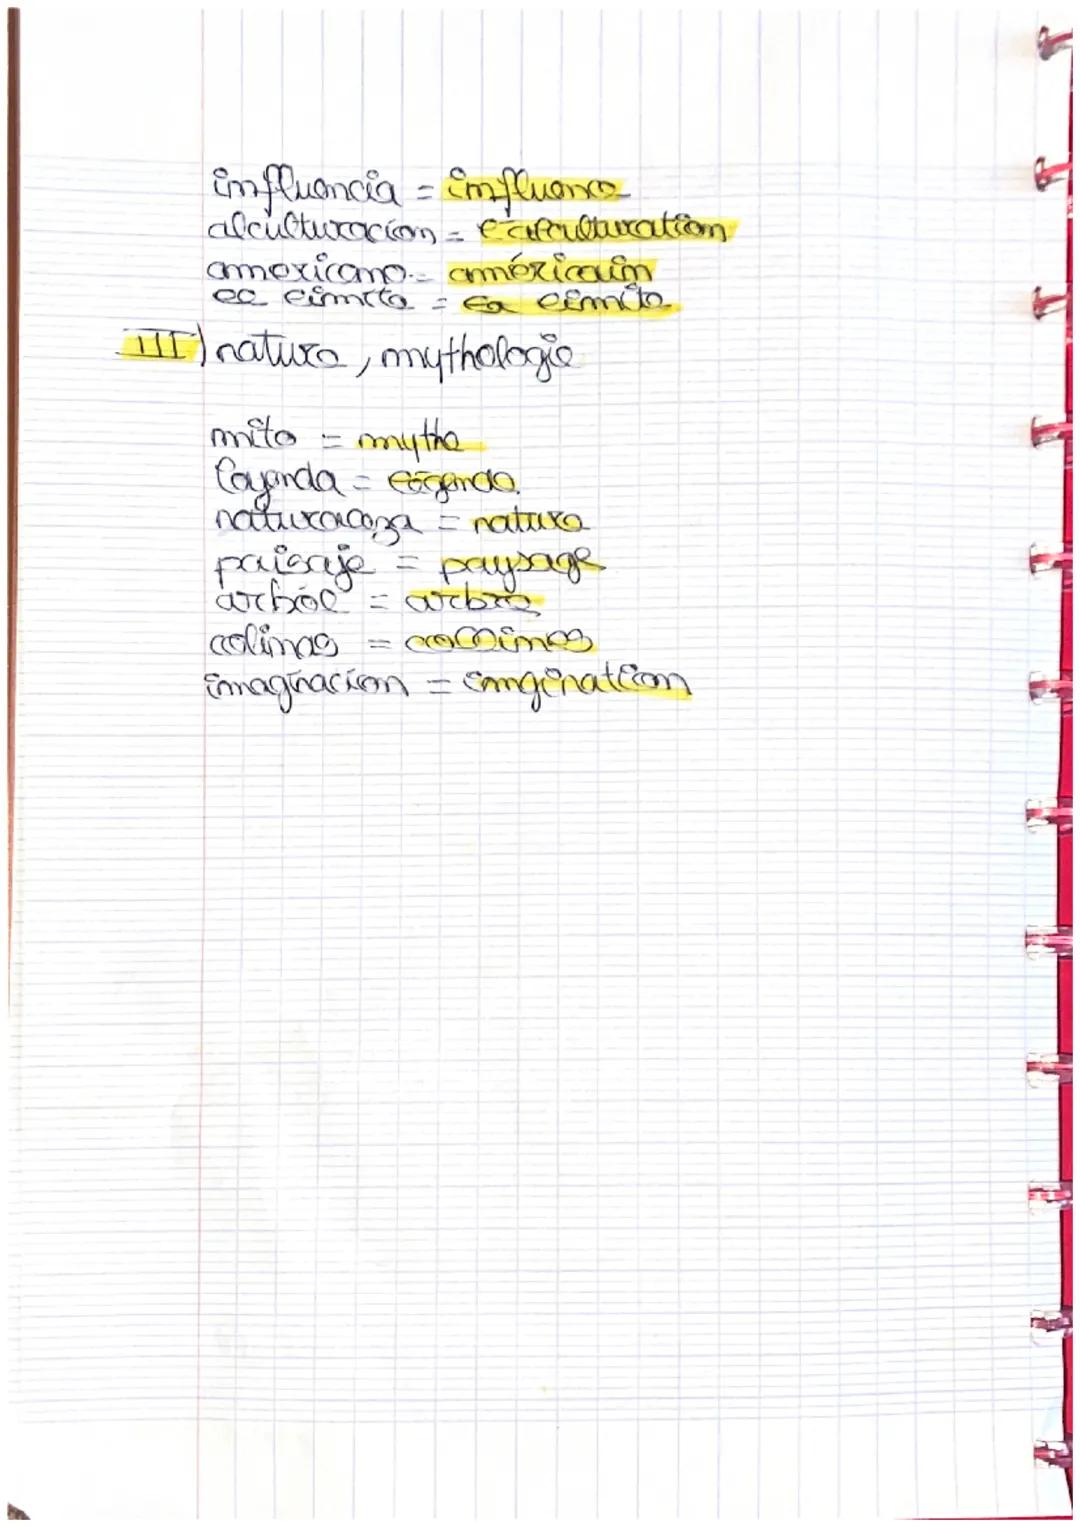 influencia = influence
alculturación = l'acculturation
americano = américain
el límite = la limite
III) nature, mythologie
mito = mythe
leyenda = légende
naturaleza = nature
paisaje = paysage
arból = arbre
colinas = collines
imaginación = imgination